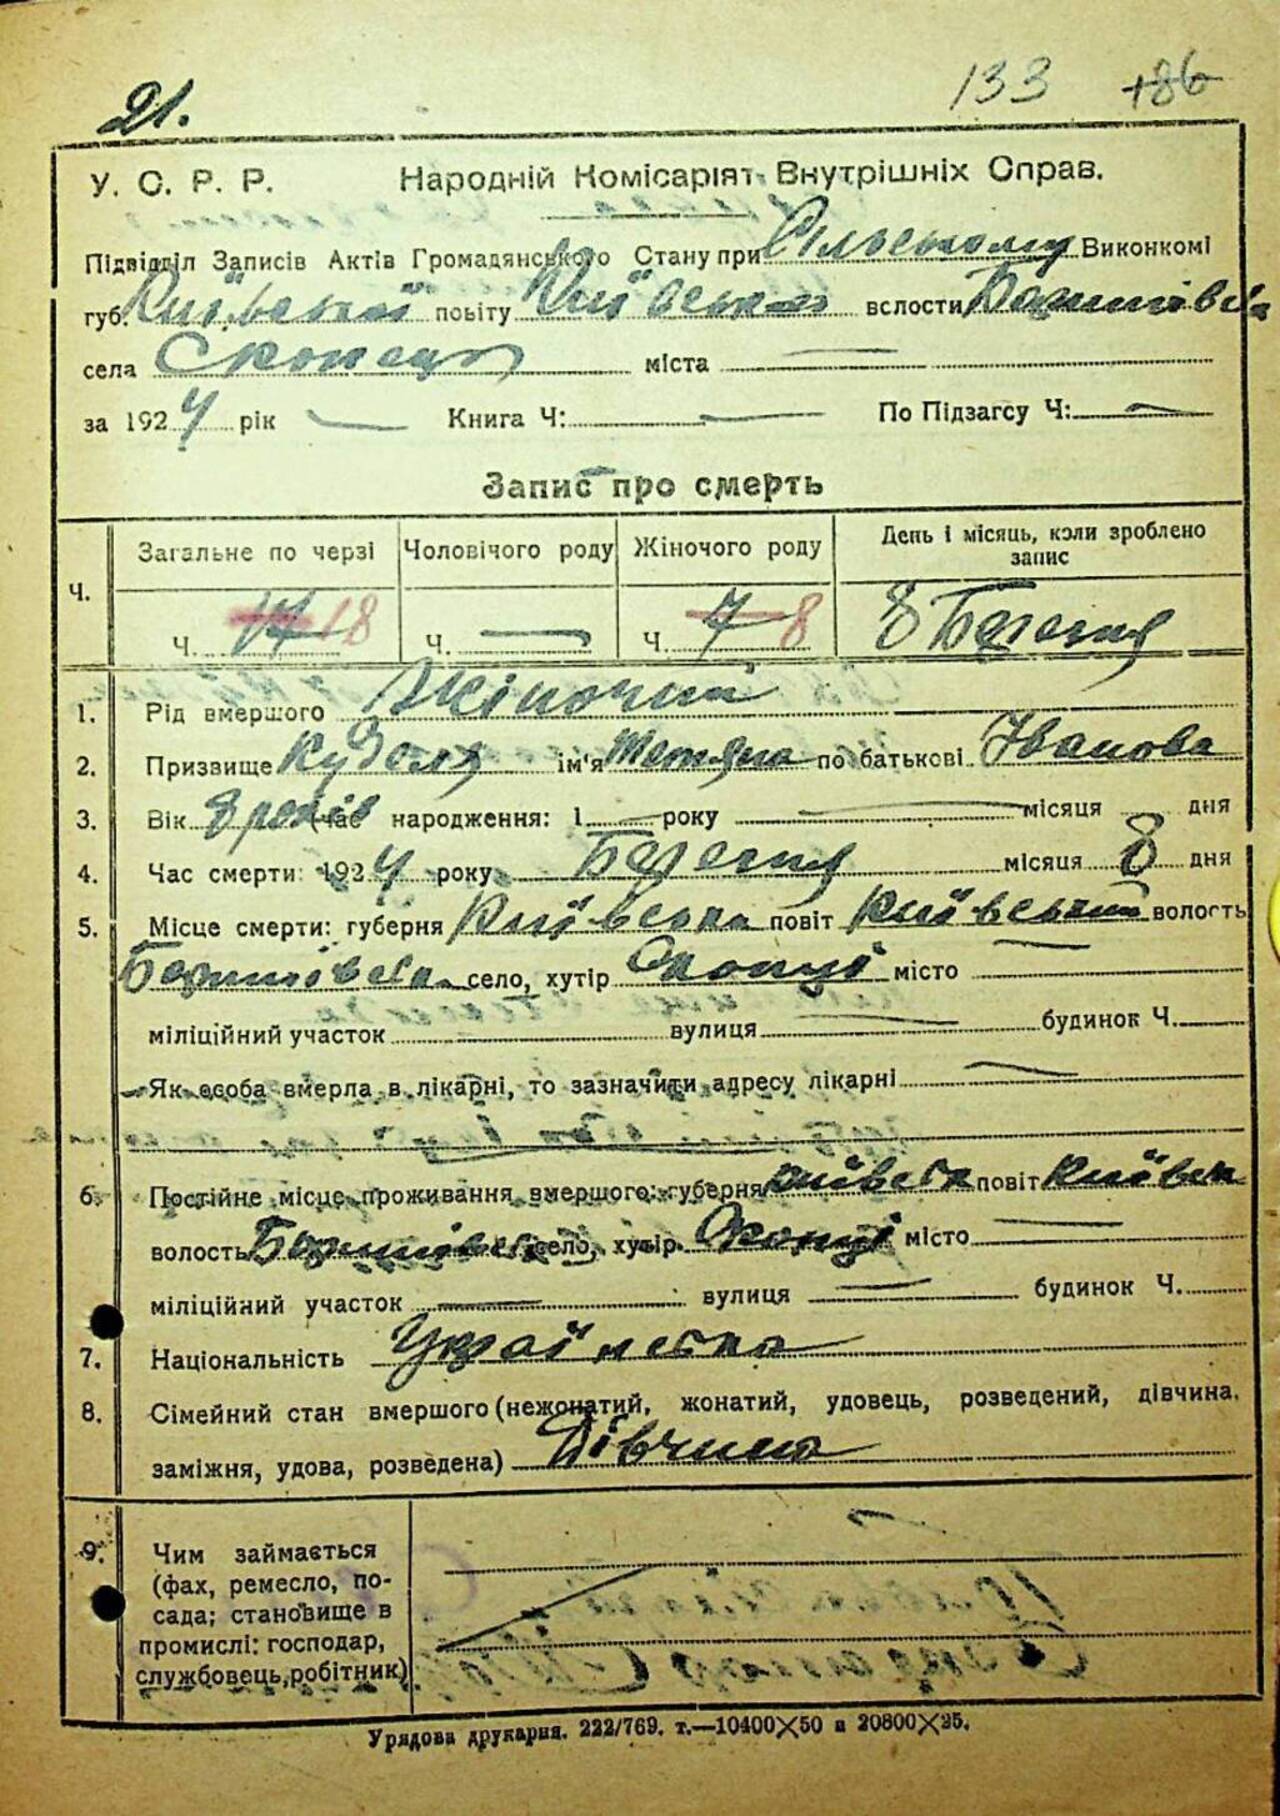 21.
133 186
У. С. Р. Р. Народній Комісаріят Внутрішніх Справ.
Підвідділ Записів Актів Громадянського Стану при Сільському Виконкомі
губ. Київської повіту Київського вслости
села Скопець міста —
за 1924 рік — Книга Ч: — По Підзагсу Ч: —
Запис про смерть
Ч. Загальне по черзі Чоловічого роду Жіночого роду День і місяць, коли зроблено запис
Ч. 17 18 Ч. — Ч. 7 8 8 Березня
1. Рід вмершого Жіночий
2. Призвище Кузеля ім'я Тетяна по батькові Іванова
3. Вік 8 років (час народження: 1 — року — місяця дня
4. Час смерти: 1924 року Березня місяця 8 дня
5. Місце смерти: губерня Київська повіт Київський волость
село, хутір Скопці місто —
міліційний участок вулиця — будинок Ч.
Як особа вмерла в лікарні, то зазначити адресу лікарні —
6. Постійне місце проживання вмершого: губерня Київська повіт Київськ
волость село, хутір. Скопці місто —
міліційний участок — вулиця — будинок Ч.
7. Національність Українка
8. Сімейний стан вмершого (нежонатий, жонатий, удовець, розведений, дівчина,
заміжня, удова, розведена) Дівчина
9. Чим займається
(фах, ремесло, по-
сада; становище в
промислі: господар,
службовець, робітник)
Урядова друкарня. 222/769. т.—10400×50 и 20800×25.